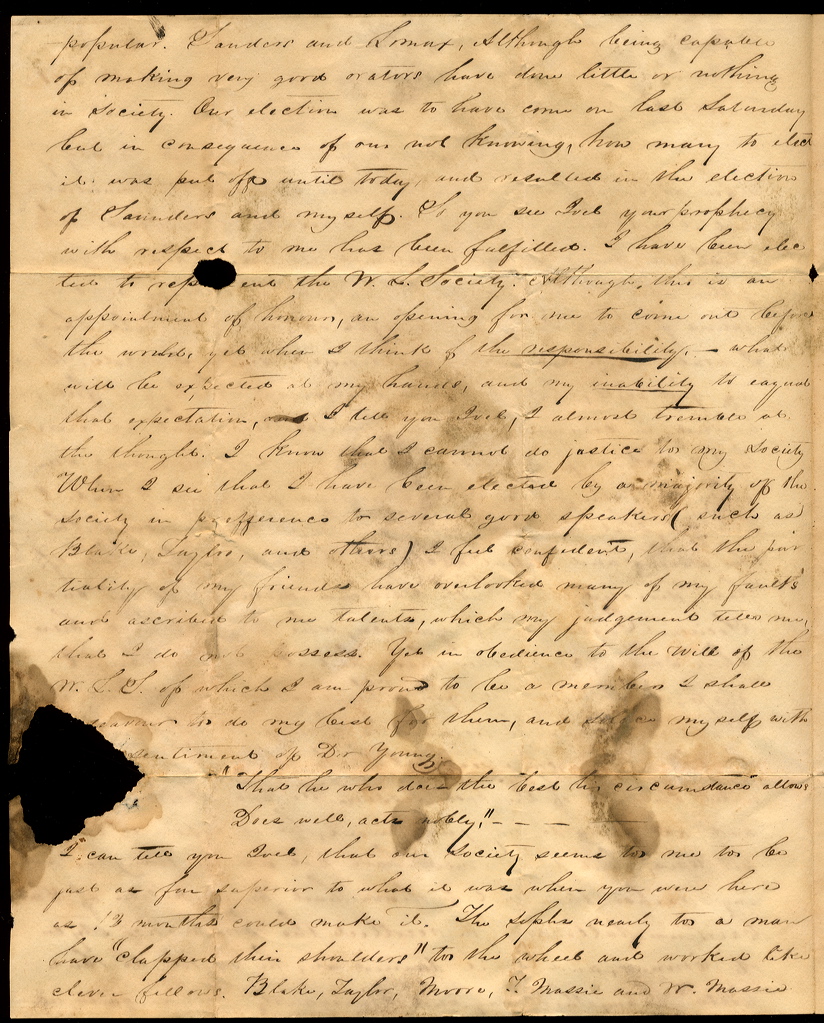 popular. Sanders and Lomax, Although being capable
of making very good orators have done little or nothing
in Society. Our election was to have come on last Saturday
but in consequence of our not knowing, how many to elect
it was put off until today, and resulted in the election
of Saunders and myself. So you see Joel your prophecy
with respect to me has been fulfilled. I have been elec
ted to rep ent the W. L. Society. Although, this is an
appointment of honour, an opening for me to come out before
the world, yet when I think of the responsibility, — what
will be expected at my hands, and my inability to equal
that expectation, I tell you Joel, I almost tremble at
the thought. I know that I cannot do justice to my Society
When I see that I have been elected by a majority of the
Society in prefference to several good speakers (such as
Blake, Taylor, and others) I feel confident, that the par
tiality of my friends have overlooked many of my faults
and ascribed to me talents, which my judgement tells me,
that I do not possess. Yet in obedience to the will of the
W. L. S. of which I am proud to be a member I shall
deavour to do my best for them, and solace myself with
sentiment of Dr Young.
"That he who does the best his circumstance allows
Does well, acts nobly," — — — —
I can tell you Joel, that our Society seems to me to be
just as far superior to what it was when you were here
as 13 months could make it. The sophs nearly to a man
have "clapped their shoulders" to the wheel and worked like
clever fellows. Blake, Taylor, Moore, T. Massie and W. Massie